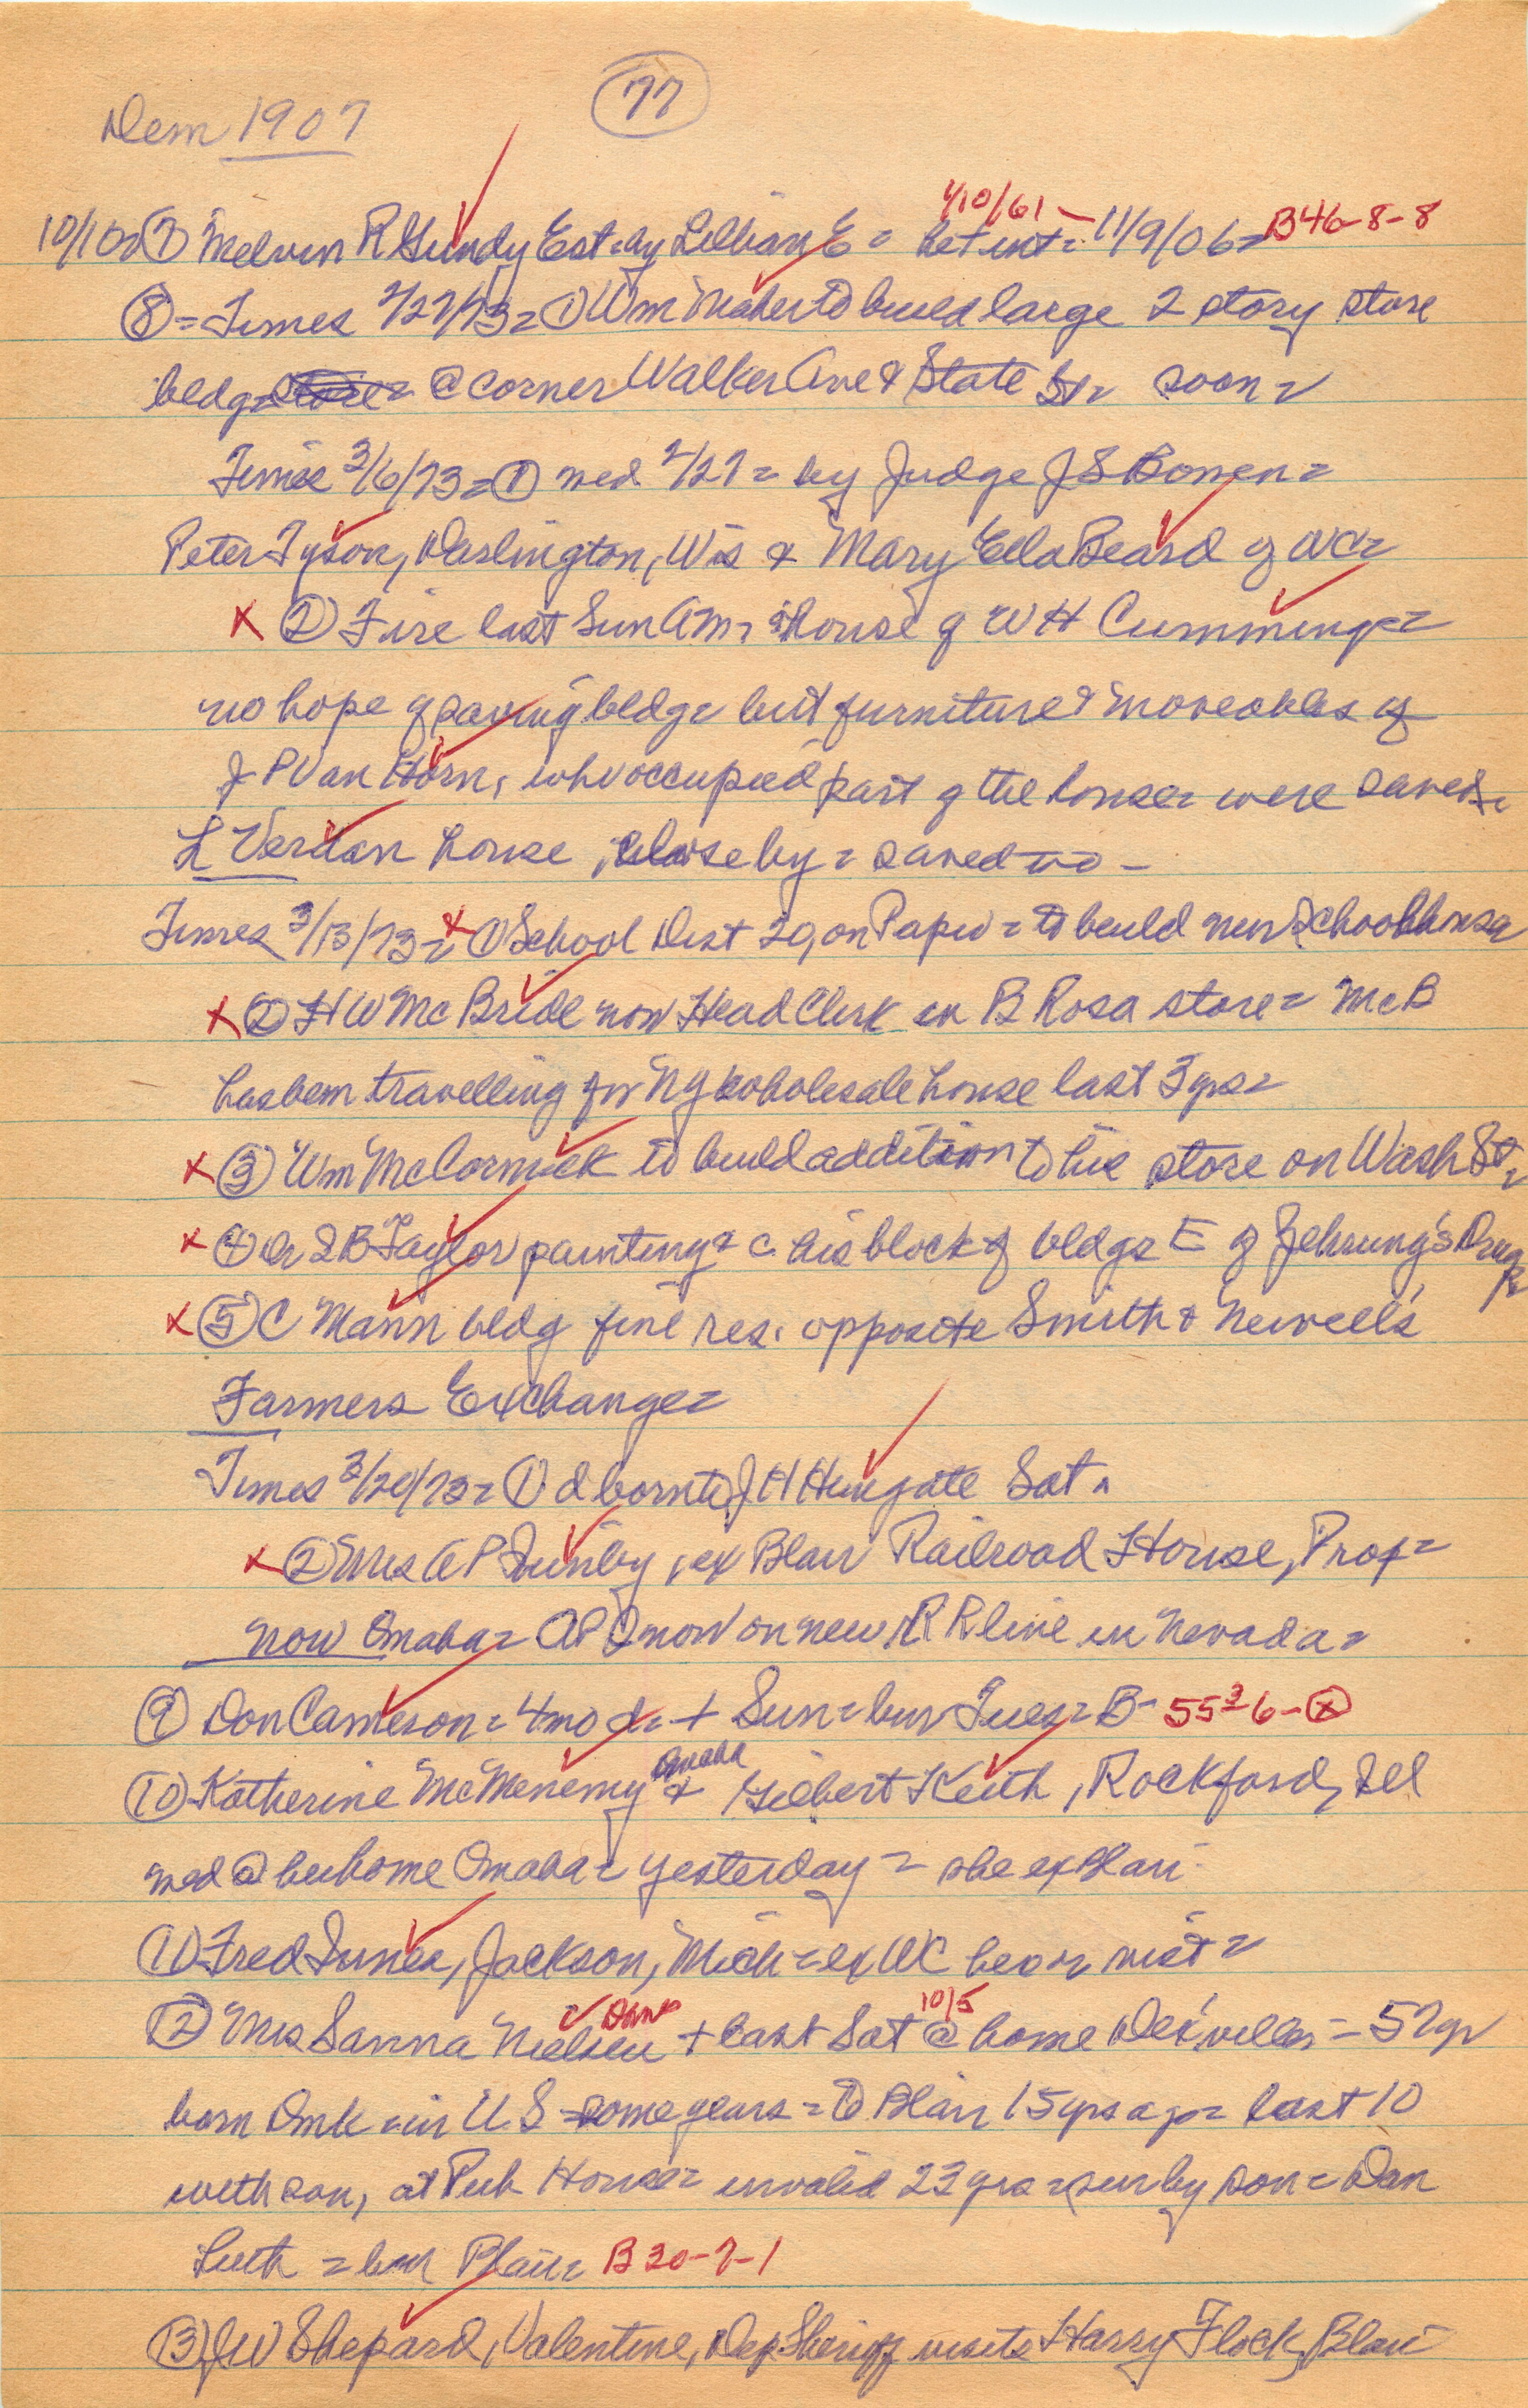 77
Dem 1907
1/10/61 - B46-8-8
10/10= ⑦ Melvin R Gundy Est=by Lillian E = Let ext= 11/9/06=
⑧=Times 2/27/73= ① Wm Maher to build large 2 story store
bldg= @ corner Walker Ave & State St= soon=
Times 3/6/73=① med 2/27= by Judge J S Bowen=
Peter Tyson, Darlington, Wis & Mary Ella Beard of WC=
x ② Fire last Sun AM, House of W H Cummings=
no hope of saving bldg= but furniture & moveables of
J P Van Horn, who occupied part of the house= were saved=
L Verdan house, close by = saved
Times 3/13/73= x ① School Dist 29, on Papio = to build new Schoolhouse
x ② H W McBride now Head Clerk in B Rosa store= McB
has been travelling for NY wholesale house last 3 yrs=
x ③ Wm McCormick to build addition to his store on Wash St=
x ④ Dr S B Taylor painting= c. his block of bldgs E of Gehrung's Drugs
x ⑤ C Mann bldg fine res. opposite Smith & Newell's
Farmers Exchange=
Times 3/20/73= ① d born to J H Hungate Sat.
x ② Mrs A P Quinby, ex Blair Railroad House, Prop=
now Omaha= A P Q now on new R R line in Nevada=
⑨ Don Cameson= 4mo d= + Sun= bur Tues= B- 55 3 6-ⓧ
Omaha
⑩ Katherine McMenemy & Gilbert Keith, Rockford, Ill
med @ her home Omaha= yesterday= she ex Blair
⑪ Fred Innes, Jackson, Mich=ex WC here visit=
Dan 10/5
⑫ Mrs Sanna Nielsen + last Sat @ home Dex'ville= - 57 yr
born Dmk = in U S = some years= to Blair 15 yrs ago= last 10
with son, at Pub House= invalid 23 yrs = sur by son= Dan
Luth = bur Blair= B 30-7-1
⑬ J W Shepard, Valentine, Dep Sheriff visits Harry Flock, Blair